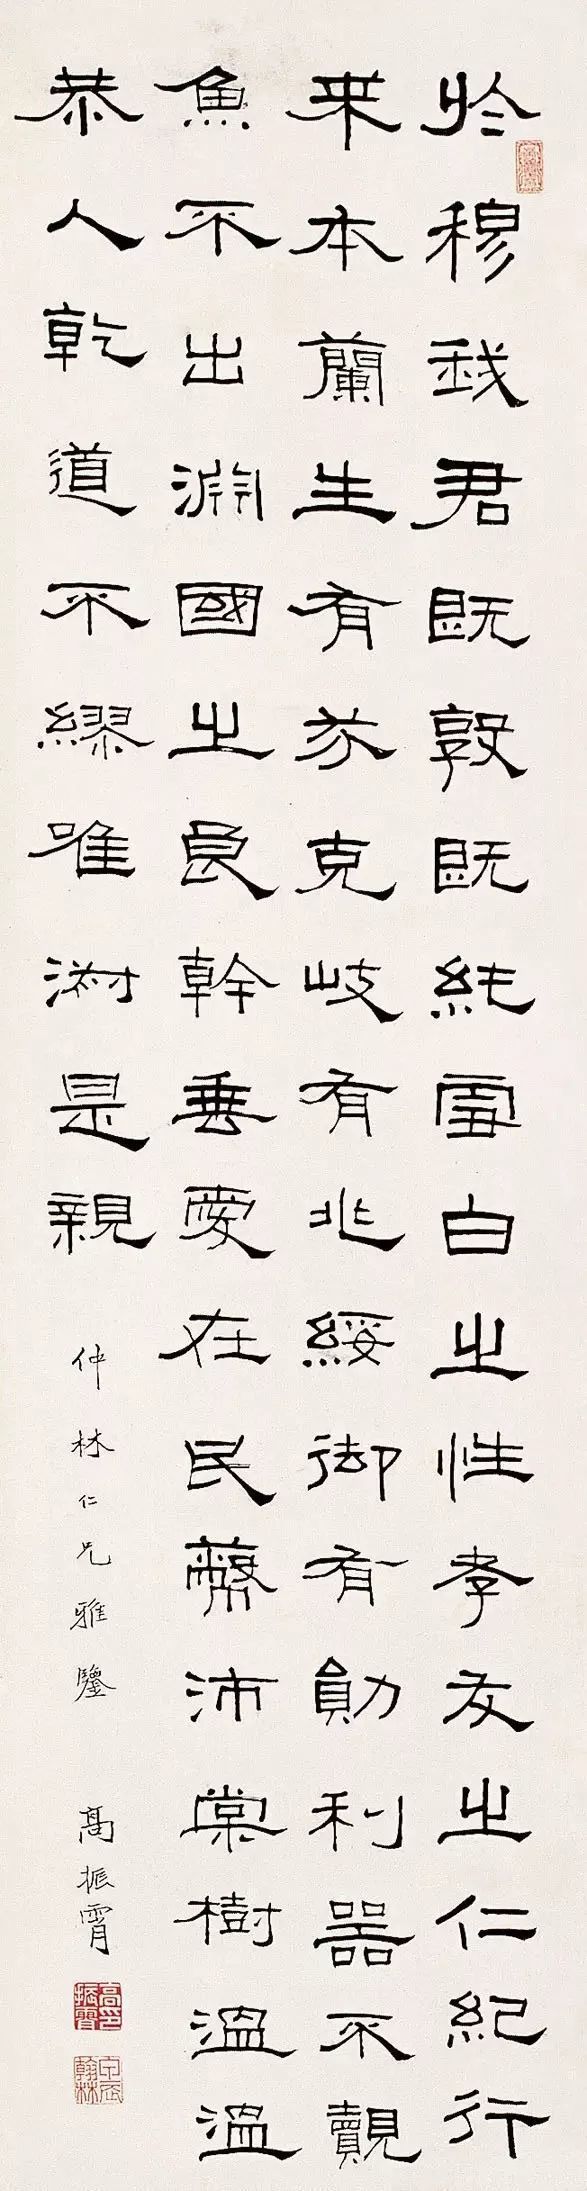 於穆我君既敦既純雪白之性孝友之仁紀行
来本蘭生有芬克岐有兆綏御有勛利器不覿
魚不出淵國之良幹垂愛在民蔽沛棠樹溫溫
恭人乾道不繆唯淑是親
仲林仁兄雅鑒
高振霄
高印振霄